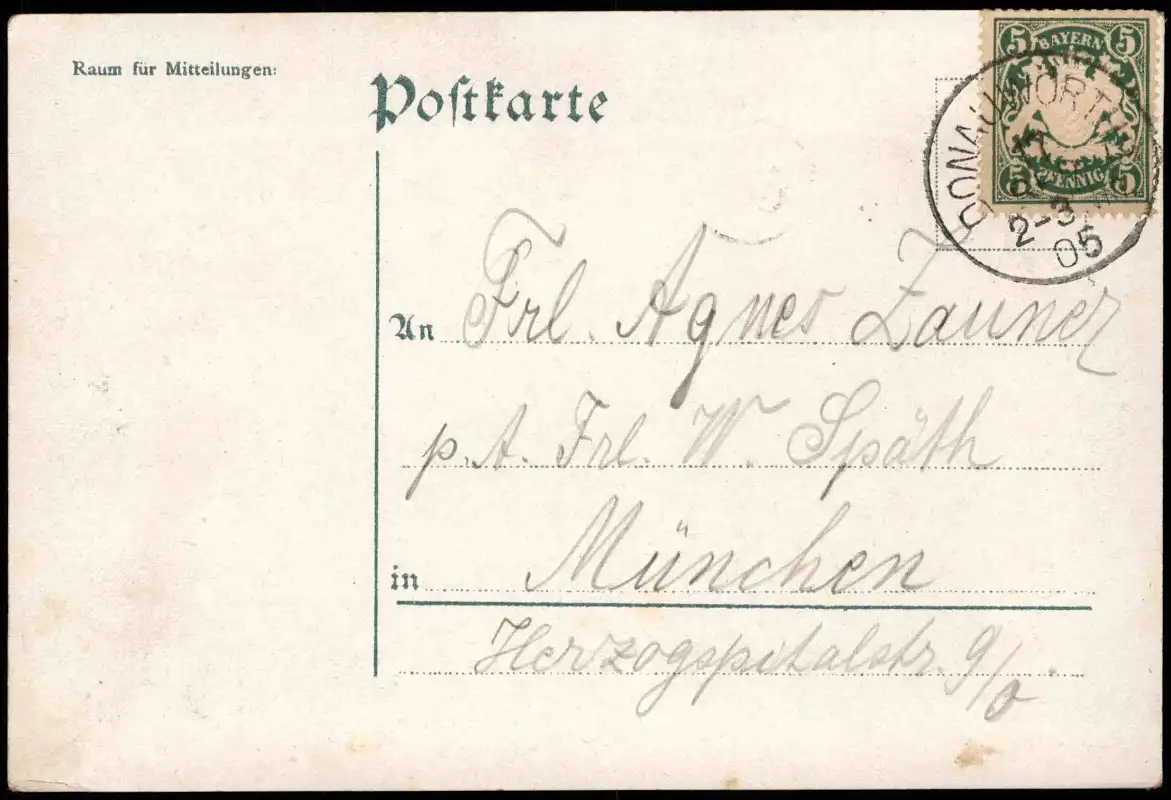 Raum für Mitteilungen:
Postkarte
5 BAYERN 5
5 PFENNIG 5
DONAUWÖRTH
2-3
05
An Frl. Agnes Zauner
p. A. Frl. W. Späth
in München
Herzogspitalstr. 9/0